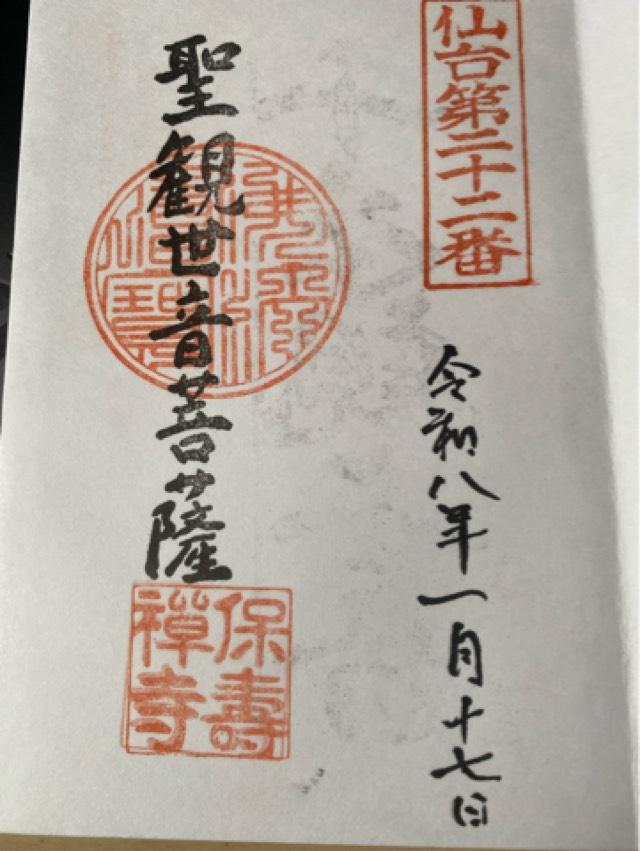 仙台第二十二番
令和八年一月十七日
聖観世音菩薩
保壽
禅寺